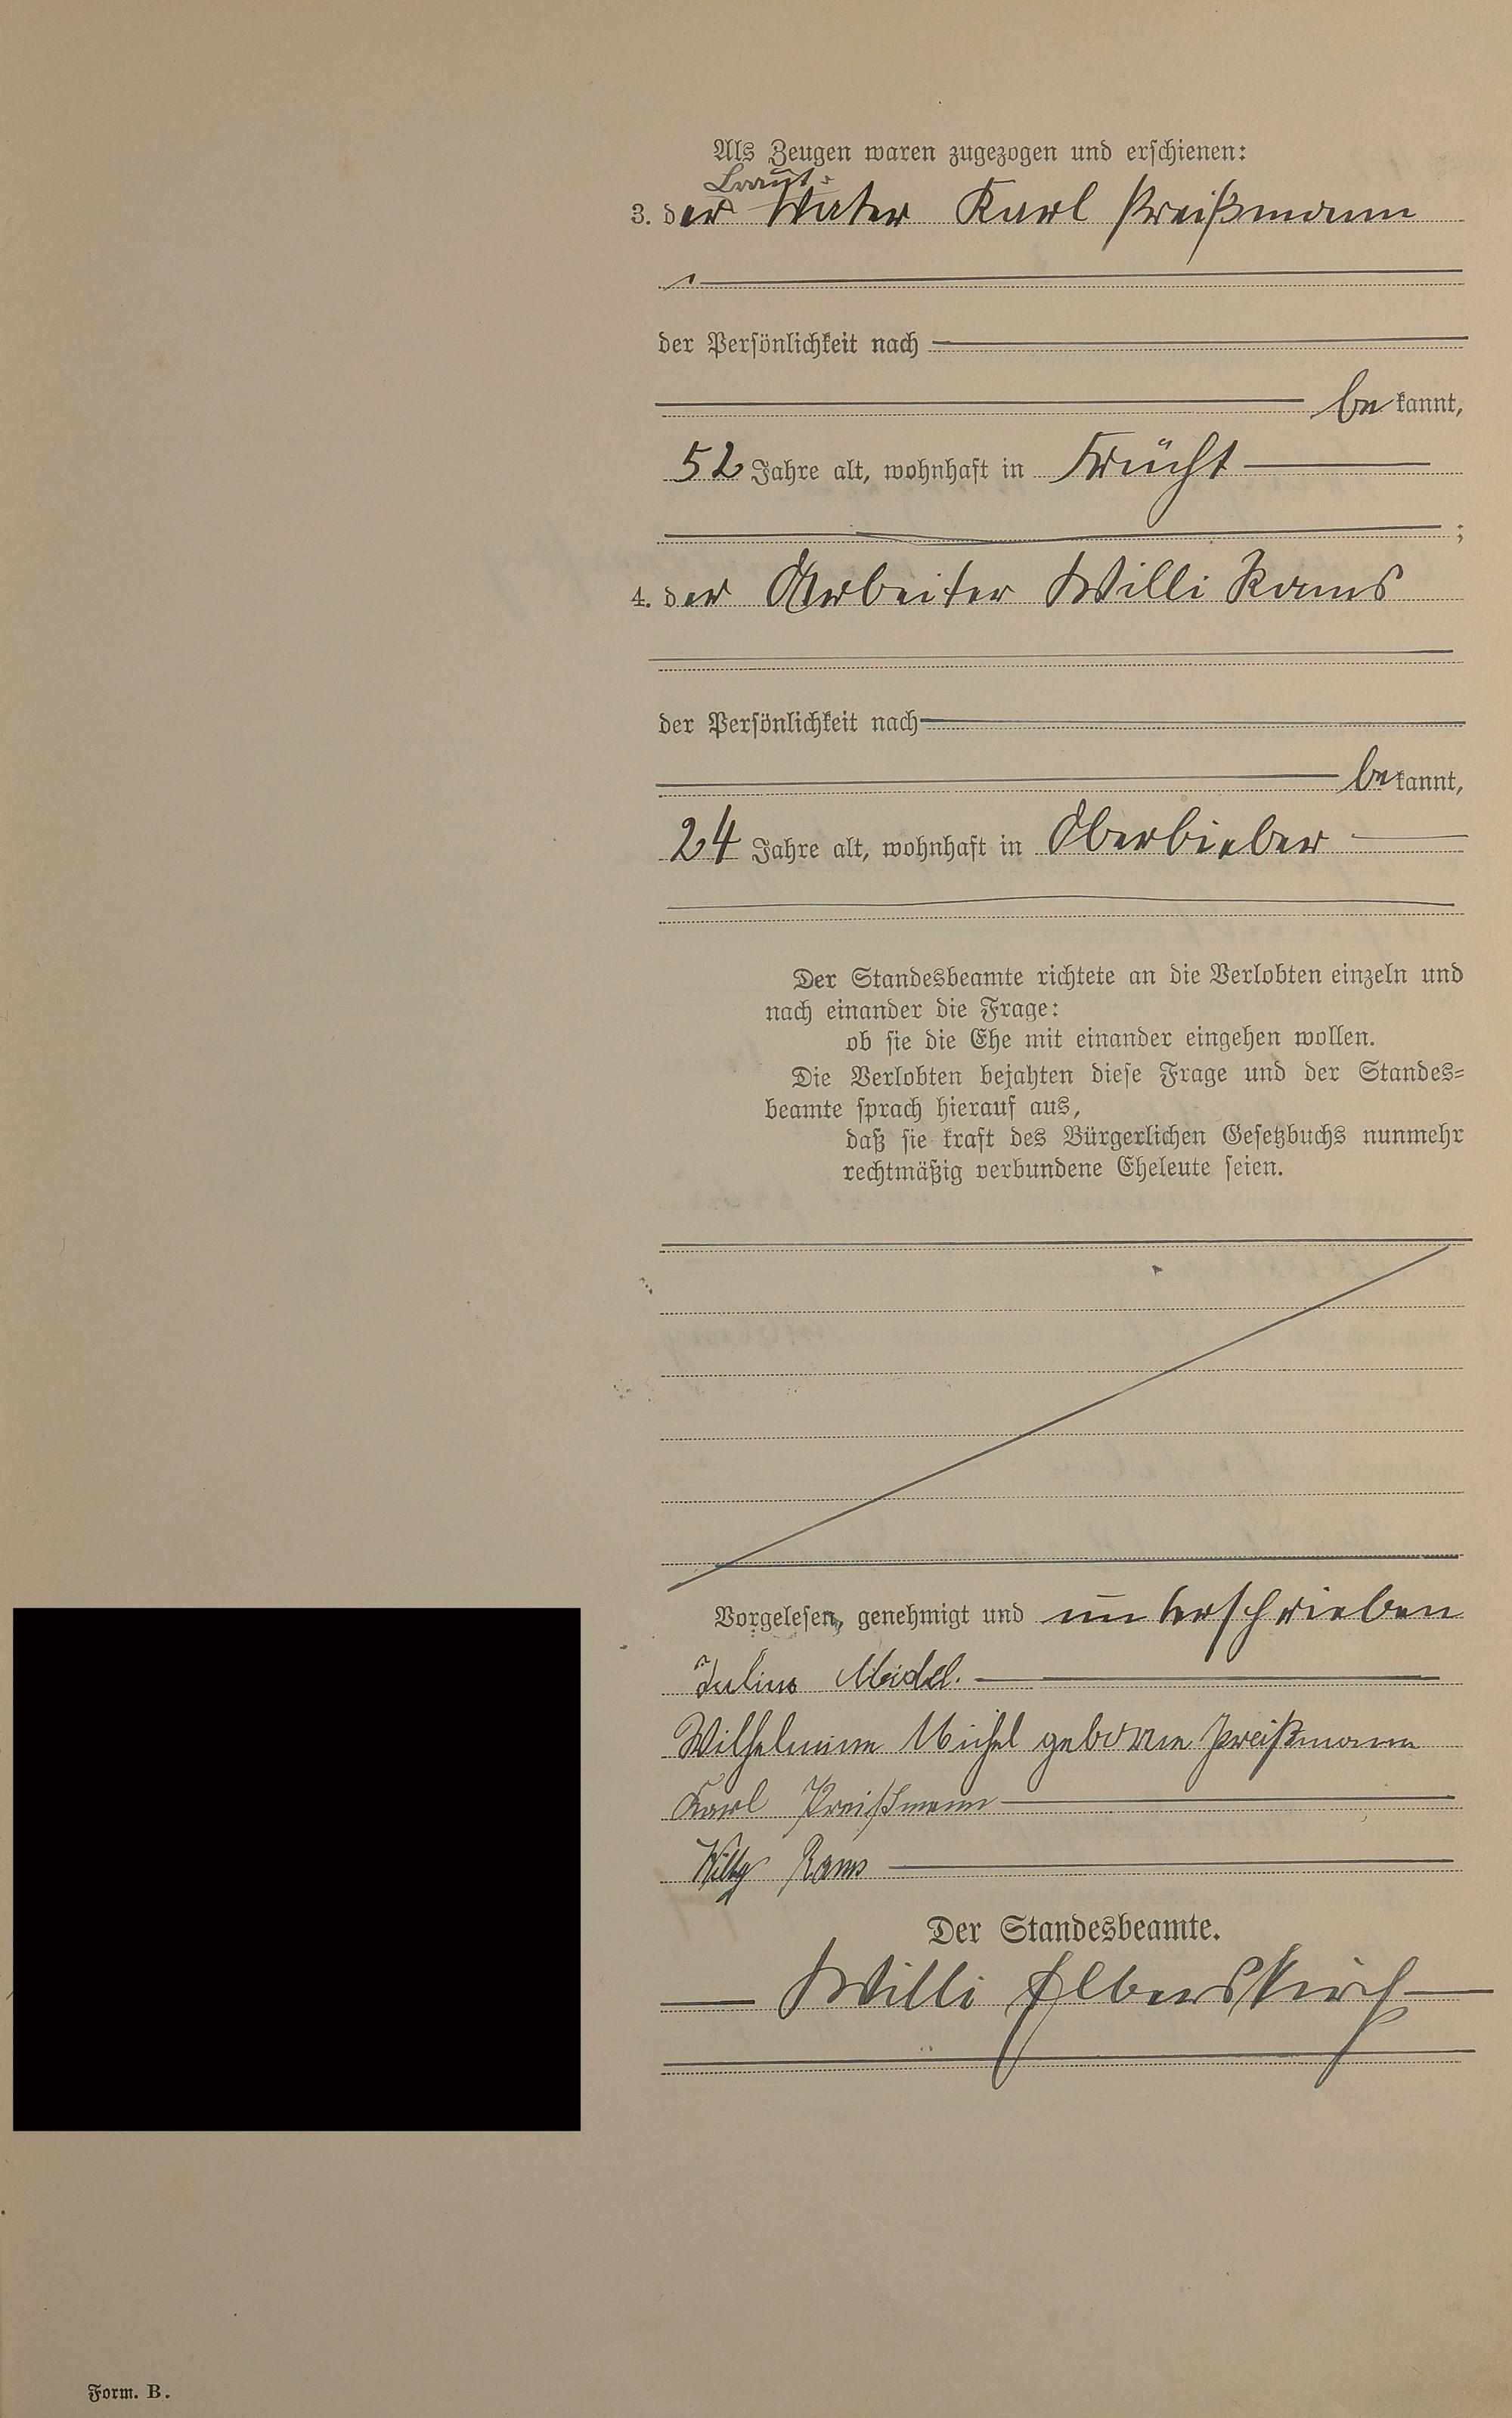 Als Zeugen waren zugezogen und erschienen:
Braut=
3. der Vater Karl Preißmann
der Persönlichkeit nach
be kannt,
52 Jahre alt, wohnhaft in Frücht
;
4. der Arbeiter Willi Rams
der Persönlichkeit nach
be kannt,
24 Jahre alt, wohnhaft in Oberbieber
Der Standesbeamte richtete an die Verlobten einzeln und
nach einander die Frage:
ob sie die Ehe mit einander eingehen wollen.
Die Verlobten bejahten diese Frage und der Standes=
beamte sprach hierauf aus,
daß sie kraft des Bürgerlichen Gesetzbuchs nunmehr
rechtmäßig verbundene Eheleute seien.
Vorgelesen, genehmigt und unterschrieben
Julius
Wilhelmine geborne Preißmann
Karl Preißmann
Willy Rams
Der Standesbeamte.
Willi Elberskirch
Form. B.